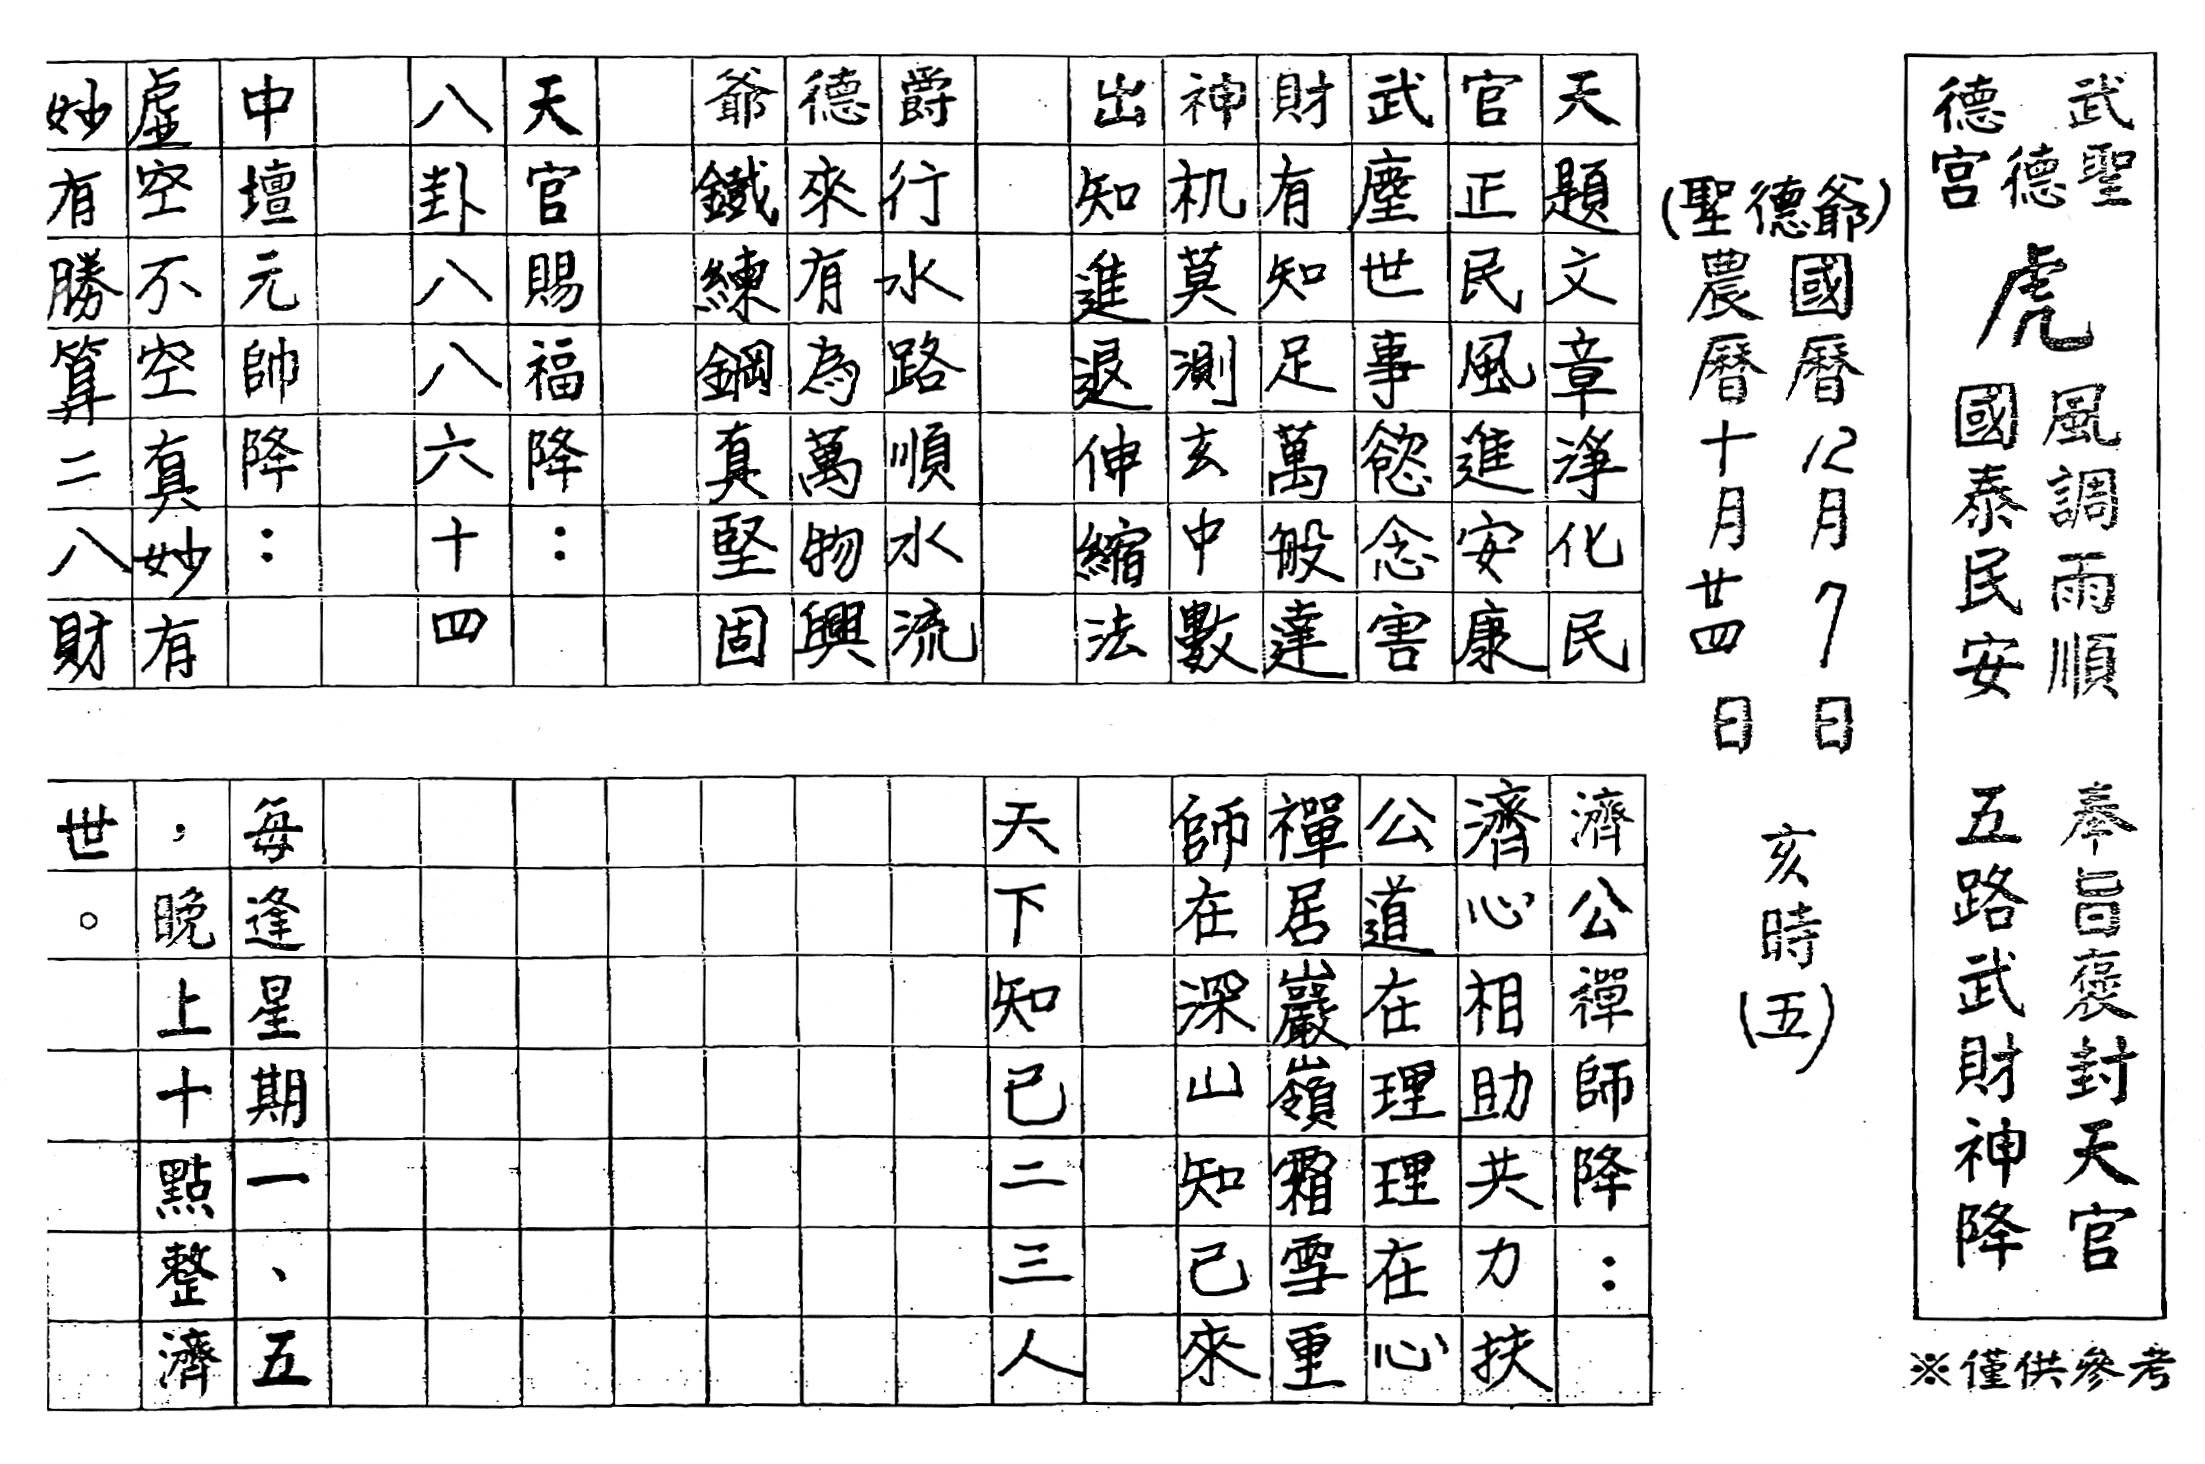 武聖
德
德宮
虎
風調雨順
國泰民安
奉旨褒封天官
五路武財神降
※僅供參考
國曆12月7日
(聖德爺)
農曆十月廿四日
亥時(五)
天題文章淨化民
官正民風進安康
武塵世事慾念害
財有知足萬般達
神机莫測玄中數
出知進退伸縮法
爵行水路順水流
德來有為萬物興
爺鐵練鋼真堅固
天官賜福降:
八卦八八六十四
中壇元帥降:
虛空不空真妙有
妙有勝算二八財
濟公禪師降:
濟心相助共力扶
公道在理理在心
禪居巖嶺霜雪重
師在深山知己來
天下知已二三人
每逢星期一、五
,晚上十點整濟
世。